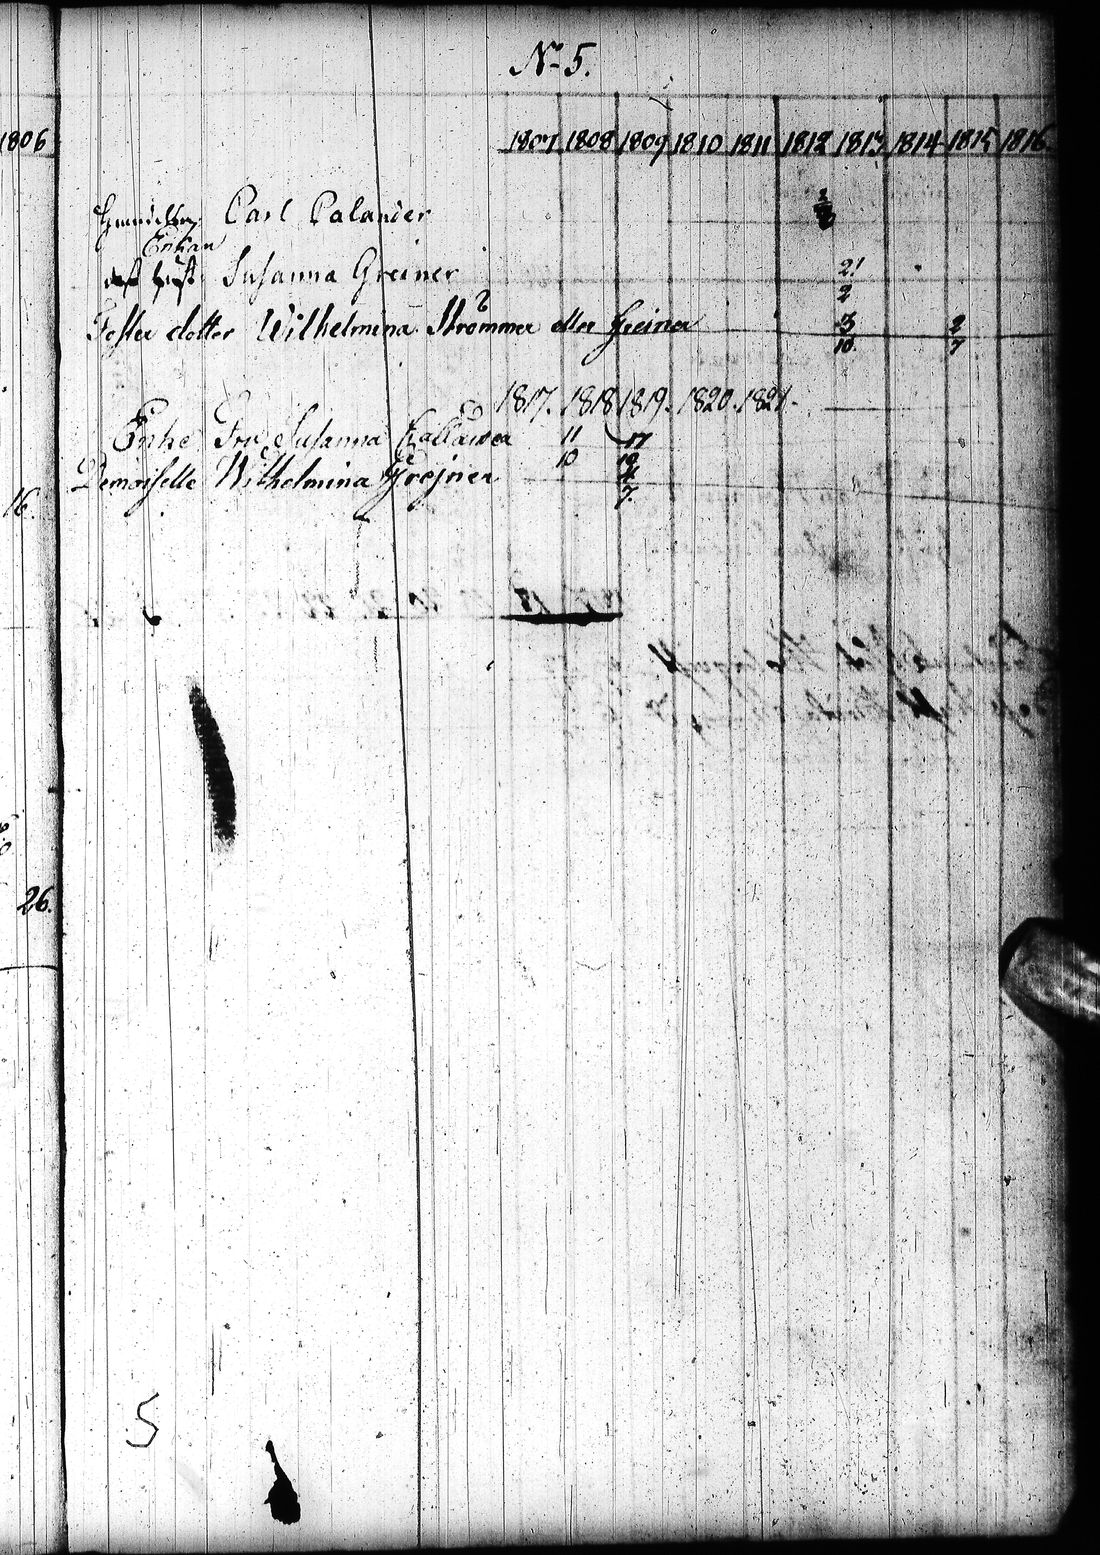 No 5.
1806
1807 1808 1809 1810 1811 1812 1813 1814 1815 1816
Carl Palander
Enkan
Susanna Greiner 21
2
Foster dotter Wilhelmina Strömmer eller Greiner 3 2
10 7
1817. 1818 1819. 1820. 1821.
Enke Fru Susanna Pallander 11 17
Demoiselle Wilhelmina Grejner 10 10
4
7.
16.
26.
5